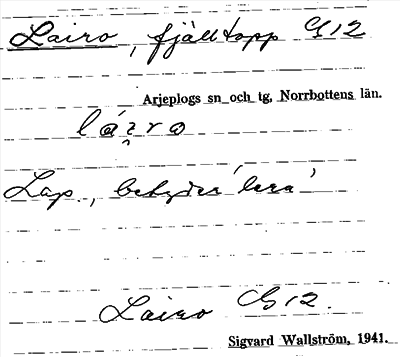 Lairo, fjälltopp G12
Arjeplogs sn och tg, Norrbottens län.
Lap., betyder 'lera'
Lairo G12.
Sigvard Wallström, 1941.